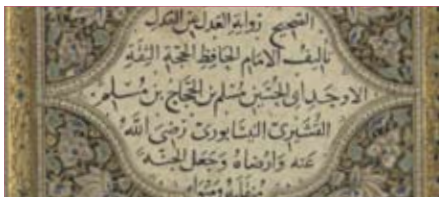 الصحيح رواية العدل عن العدل
تاليف الامام الحافظ الحجة الثقة
الاوحد ابى الحسين مسلم بن الحجاج بن مسلم
القشيرى النيسابورى رضى الله
عنه وارضاه وجعل الجنة
منقلبه ومثواه